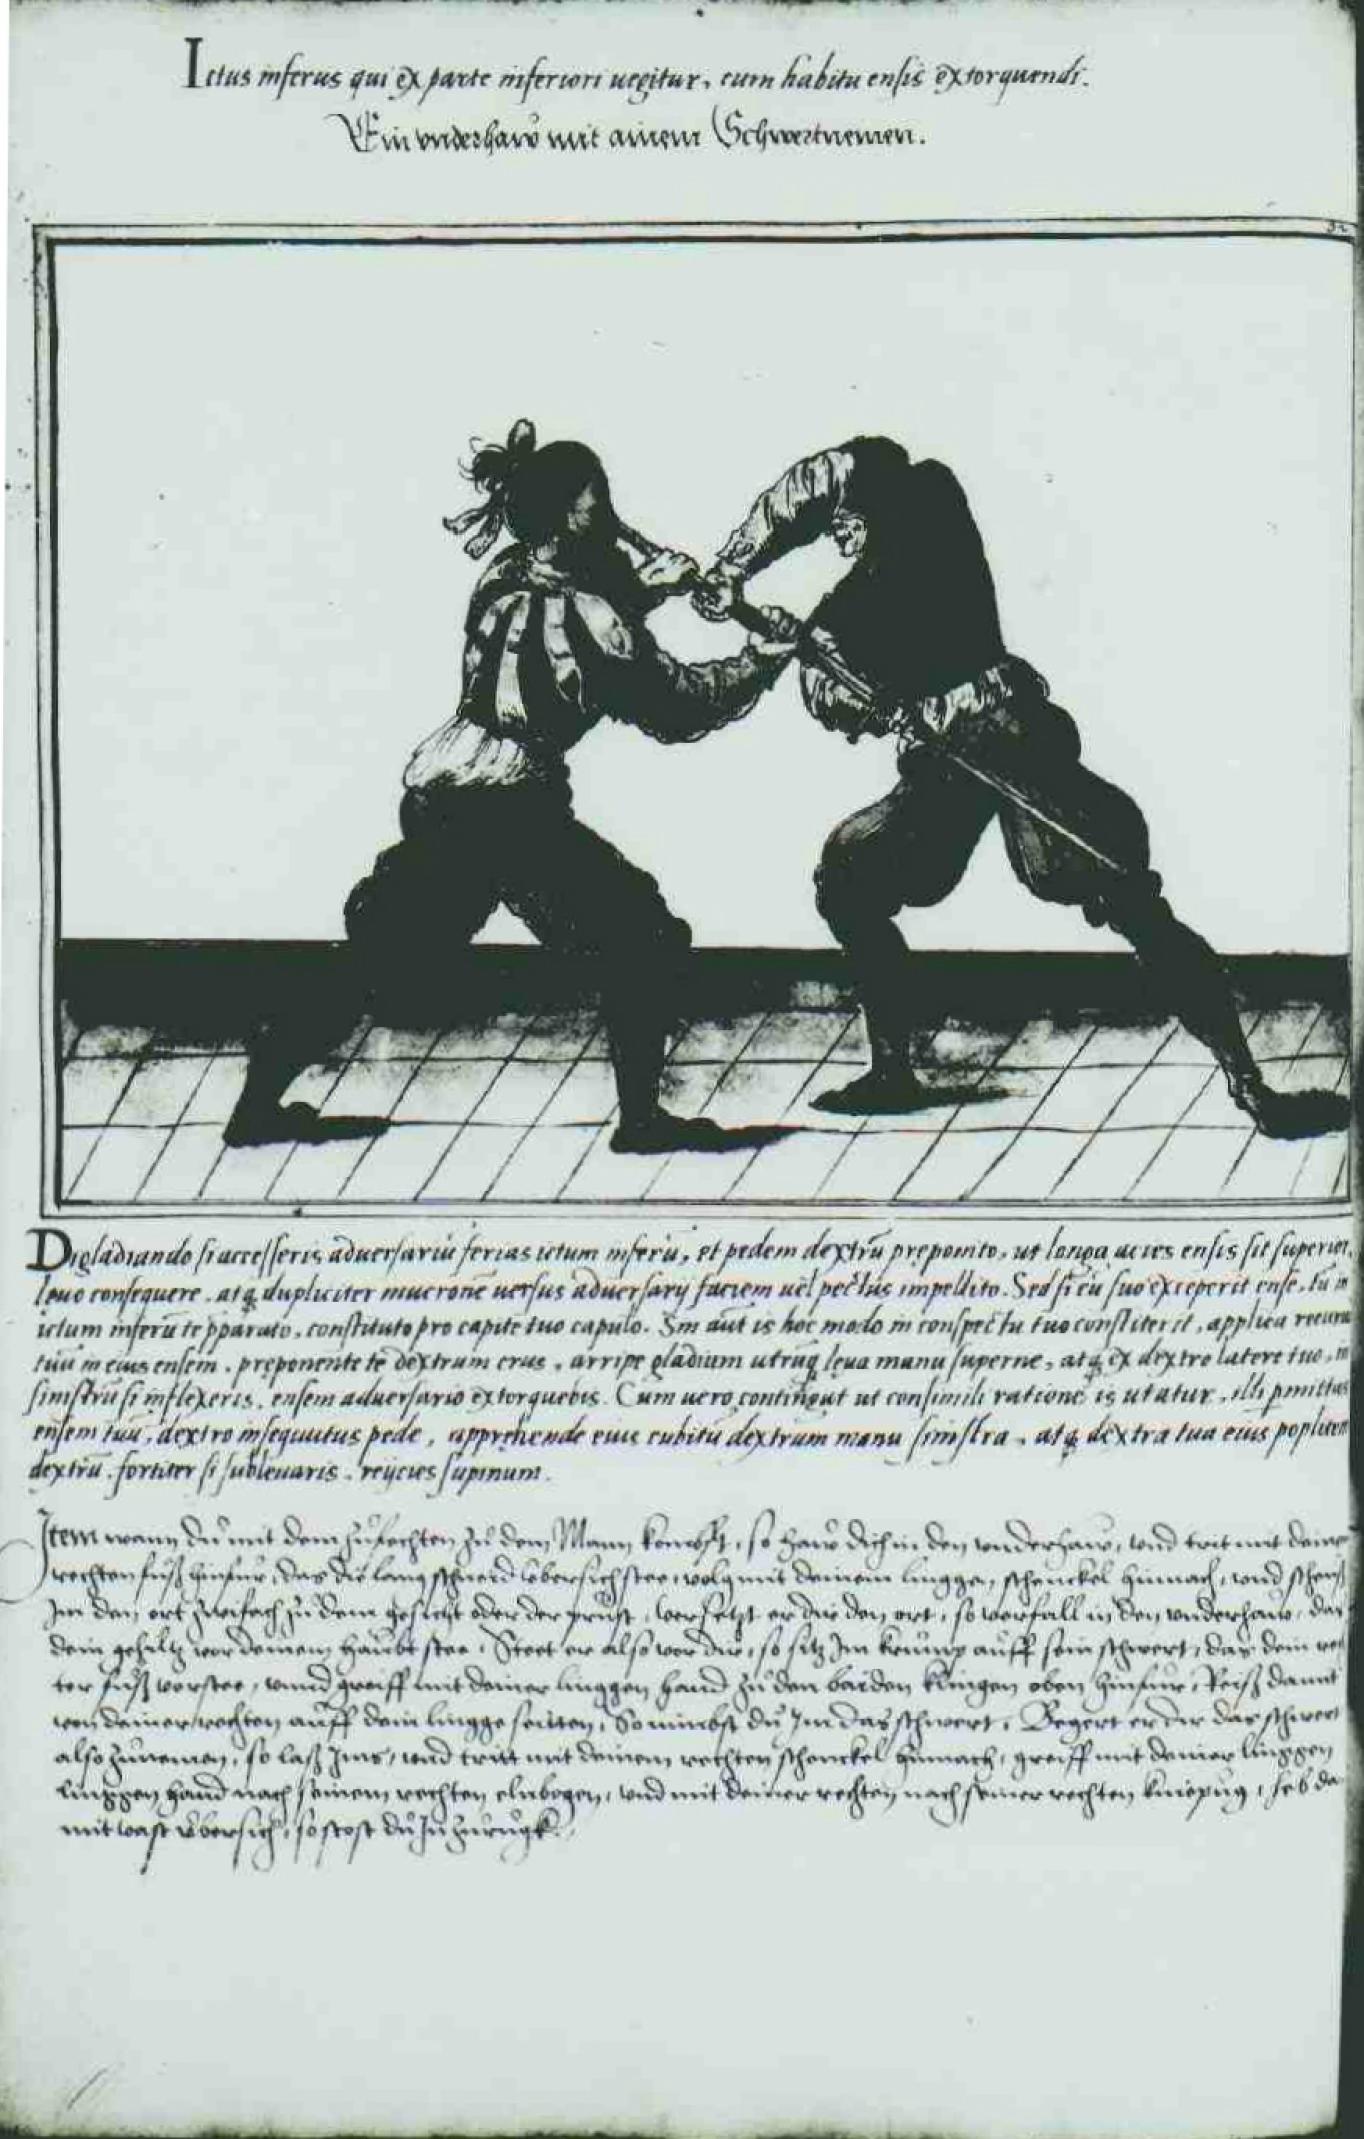 Ictus inferus qui ex parte inferiori uegitur, cum habitu ensis extorquendi.
Ein vnderhaw mit ainem Schwertnemen.
Digladiando si accesseris adversariū ferias ictum inferū, et pedem dextrū prępomito, ut longa acies ensis sit superior,
leuo consequere. atq dupliciter mucronē uersus adversarij faciem uel pectus impellito. Sed si eū suo exceperit ense, tū in
ictum inferū te pparato, constituto pro capite tuo capulo. Sin aūt is hoc modo in conspectu tuo constiterit, applica recurū
tuū in eius ensem. prępomente te dextrum crus, arripe gladium utrūq leua manu superne, atq ex dextro latere tuo, in
sinistrū si inflexeris, ensem adversario extorquebis. Cum uero contingat ut consimili ratione is utatur, illi pmittas
ensem tuū, dextro insequutus pede, apprehende eius cubitū dextrum manu sinistra, atq dextra tua eius poplitem
dextrū. fortiter si subleuaris, reijcies supinum.
Item wann dū mit dem zūfechten zū dem Mann kombst, so haw dich in den vnderhaw, vnd trit mit deinē
rechten fūß hinfūr, das die lang schneid ūbersich stee, volg mit deinem linggen schenckel hinnach, vnd scheūß
Im den ort zwifach zū dem gesicht oder der prūst, versetzt er dir den ort, so verfall in den vnderhaw, das
dein gehiltz vor deinem haūbt stee, Steet er also vor dir, so sitz Im krūmp aūff sein schwert, das dein rech
ter fūß vorstee, vnnd greiff mit deiner linggen hand zū den baiden klingen oben hinfūr, Reiß damit
von deiner rechten aūff dein lingge seitten, So nimbst dū Im das schwert, Begert er dir das schwert
also zūnemen, so laß Ims, vnd tritt mit deinem rechten schenckel hinnach, greiff mit deiner linggen
linggen hand nach seinem rechten elnbogen, vnd mit deiner rechten nach seiner rechten kniepūg, heb da
mit vast ūbersich, so stost dū In zūrūgk.